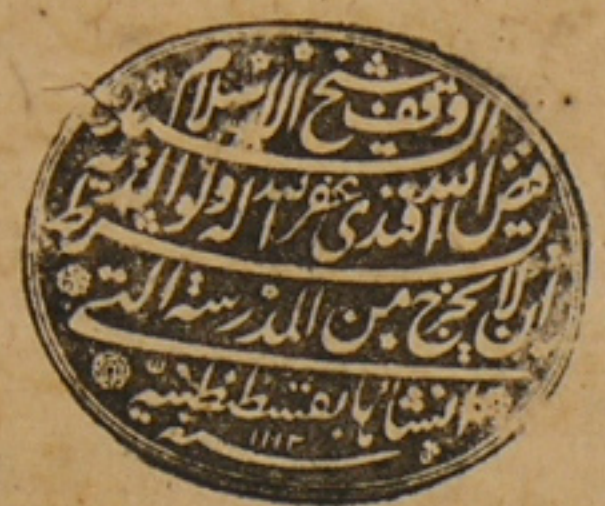 وقف شيخ الاسلام السيد
فيض الله افندى غفر الله له ولوالديه بشرط
ان لا يخرج من المدرسة التى
انشأها بقسطنطينية
سنه ١١١٣